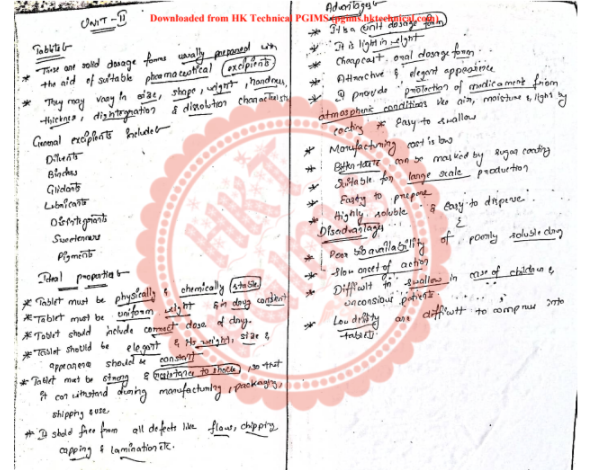 Downloaded from HK Technical PGIMS (pgims.hktechnical.com)
UNIT-II
Tablets
* These are solid dosage forms usually prepared with
the aid of suitable pharmaceutical excipients
* They may vary in size, shape, weight, hardness,
thickness, disintegration & dissolution characteristics
General excipients include
Diluents
Binders
Glidants
Lubricants
Disintegrants
Sweeteners
Pigments
Ideal properties
* Tablet must be physically & chemically stable
* Tablet must be uniform weight & in drug content
* Tablet should include correct dose of drug.
* Tablet should be elegant & its weight, size &
appearance should be constant
* Tablet must be strong & resistance to shock, so that
it can withstand during manufacturing, packaging,
shipping & use.
* It should free from all defects like flaws, chipping
capping & lamination etc.
Advantages
* It is a unit dosage form
* It is light in weight
* Cheapest oral dosage form
* Attractive & elegant appearance
* It provide protection of medicament from
atmospheric conditions like air, moisture & light by
coating * Easy to swallow
* Manufacturing cost is low
* Bitter taste can be masked by sugar coating
* Suitable for large scale production
* Easy to prepare
* Highly soluble & easy to disperse.
Disadvantages
* Poor bioavailability of poorly soluble drug
* Slow onset of action
* Difficult to swallow in case of children &
unconscious patients.
* Low density are difficult to compress into
tablets
HKT
PGIMS